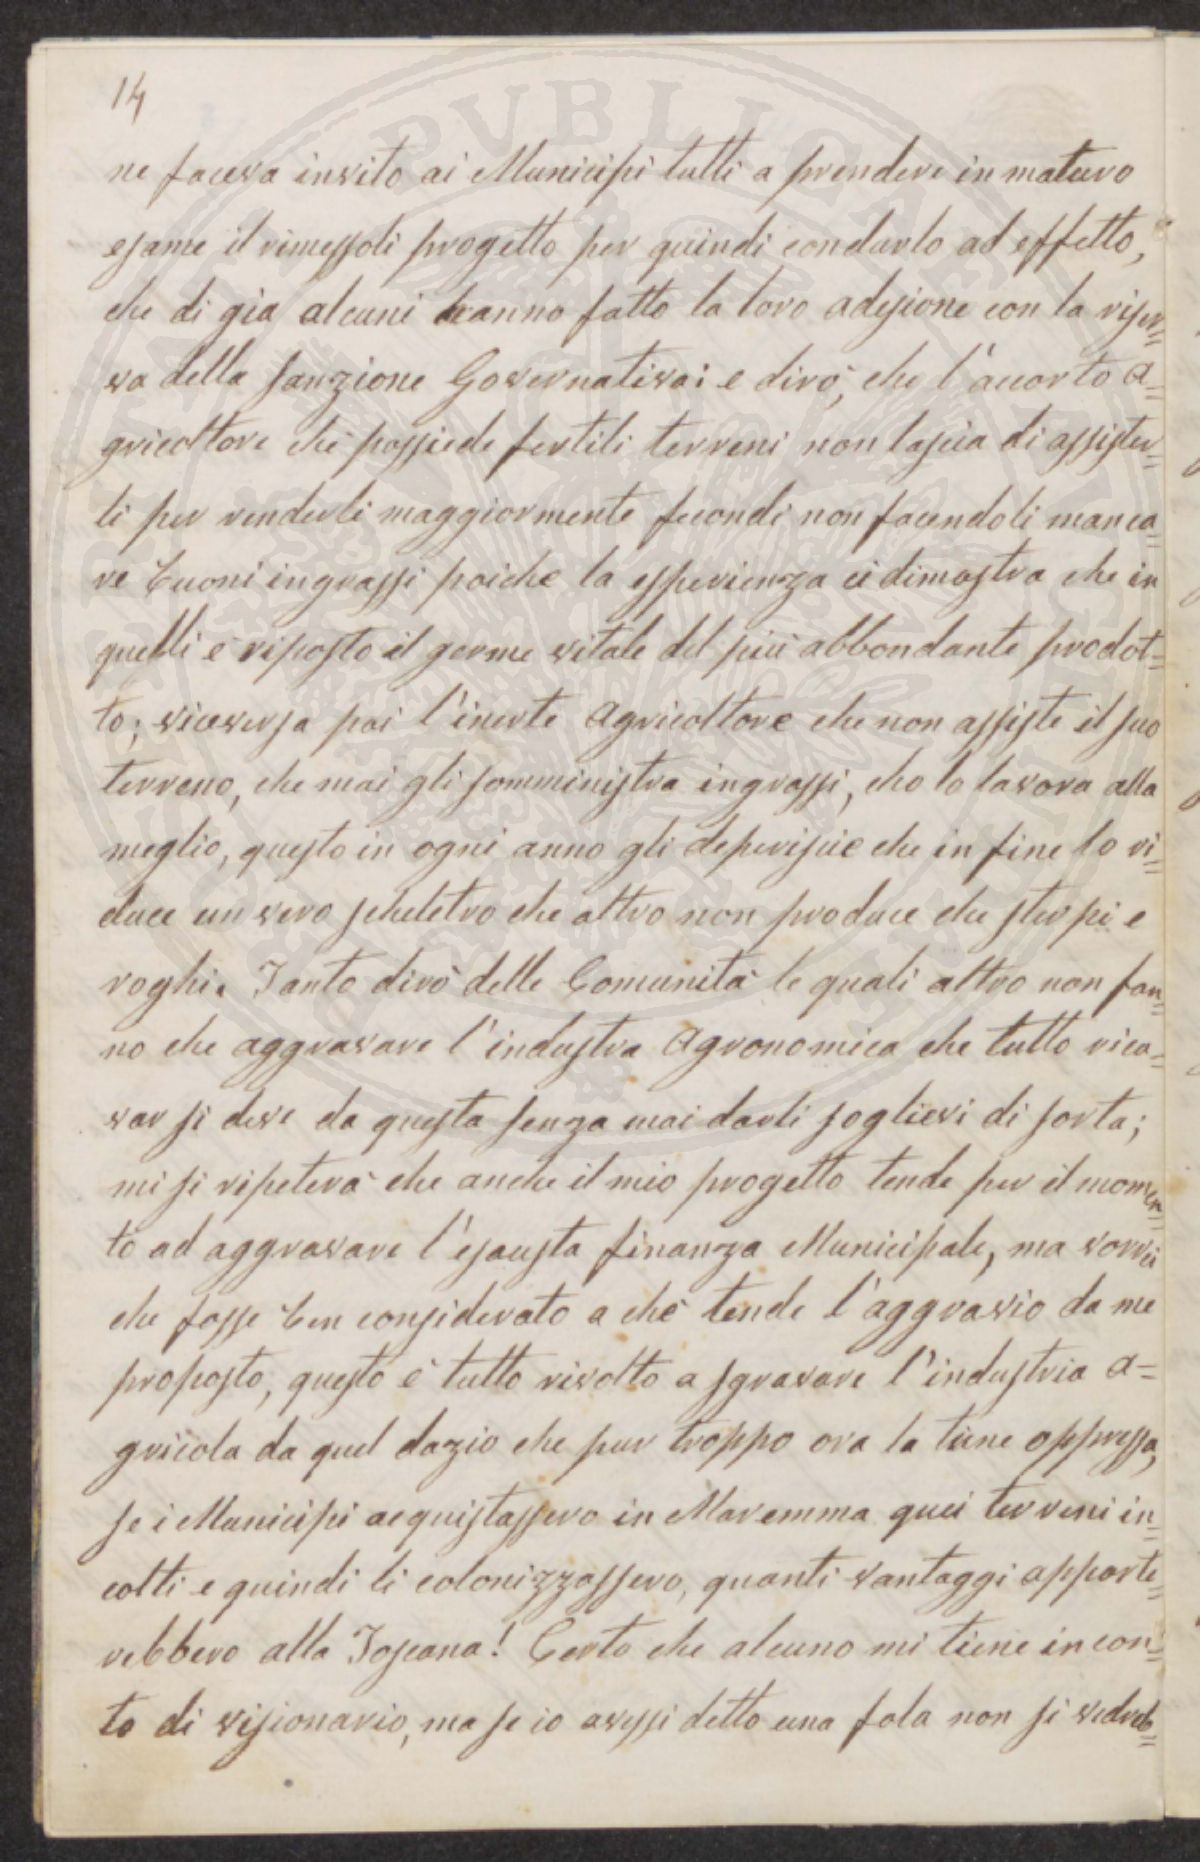 14
ne faceva invito ai Municipi tutti a prendere in maturo
esame il rimessoli progetto per quindi condurlo ad effetto,
che di già alcuni hanno fatto la loro adesione con la riser=
va della sanzione Governativa: e dirò, che l'accorto a=
gricoltore che possiede fertili terreni non lascia di assister=
li per renderli maggiormente fecondi non facendoli manca=
re buoni ingrassi poiche la esperienza ci dimostra che in
quelli è riposto il germe vitale del più abbondante prodot=
to; viceversa poi l'inerte agricoltore che non assiste il suo
terreno, che mai gli somministra ingrassi, che lo lavora alla
meglio, questo in ogni anno gli deperisce che in fine lo ri=
duce un vero scheletro che altro non produce che sterpi e
roghi. Tanto dirò delle Comunità le quali altro non fan=
no che aggravare l'industra agronomica che tutto rica=
var si deve da questa senza mai darli soglievi di sorta;
mi si ripeterà che anche il mio progetto tende per il momen=
to ad aggravare l'esausta finanza Municipale, ma vorrei
che fosse ben considerato a che tende l'aggravio da me
proposto, questo è tutto rivolto a sgravare l'industria a=
gricola da quel dazio che pur troppo ora la tiene oppressa,
se i Municipi acquistassero in Maremma quei terreni in=
colti e quindi li colonizzassero, quanti vantaggi apporte=
rebbero alla Toscana! Certo che alcuno mi tiene in con=
to di visionario, ma se io avessi detto una fola non si vedreb=